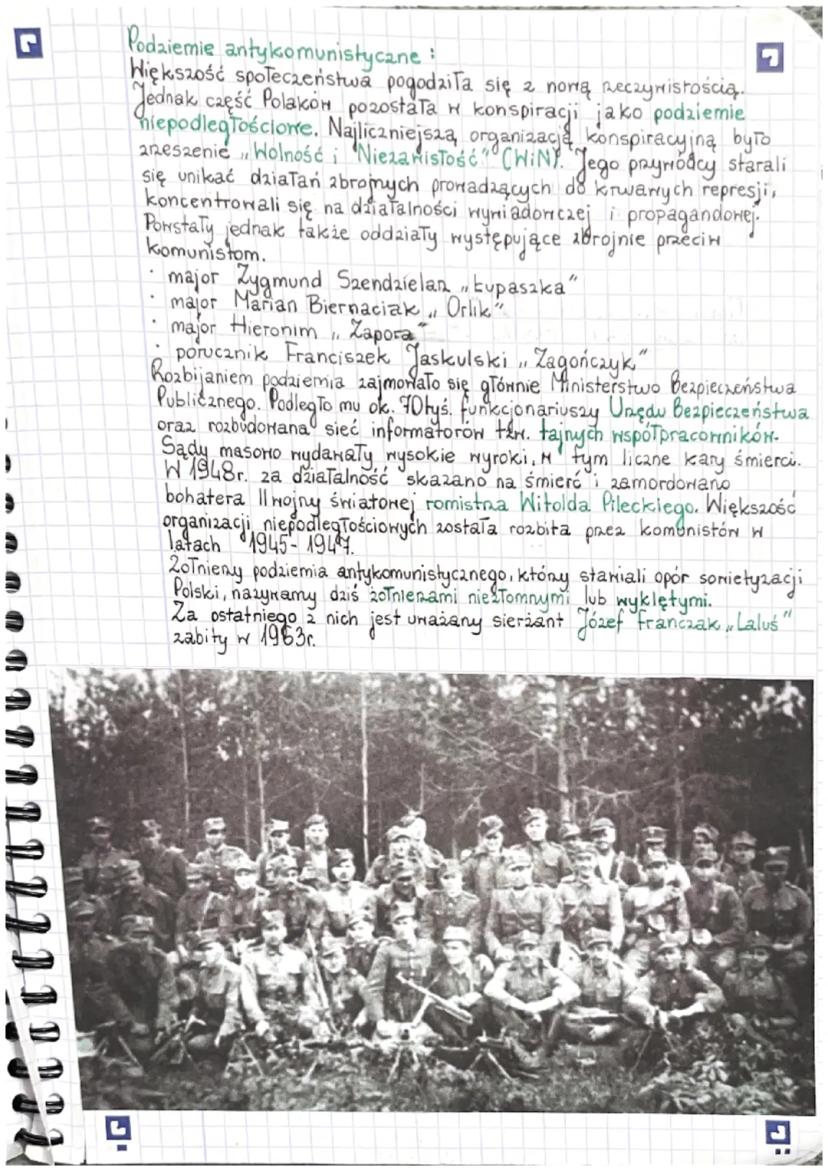 Podziemie antykomunistyczne:
Większość społeczeństwa pogodziła się z nową rzeczywistością.
Jednak część Polaków pozostała w konspiracji jako podziemie
niepodległościowe. Najliczniejszą organizacją konspiracyjną było
zrzeszenie „Wolność i Niezawisłość” (WiN). Jego przywódcy starali
się unikać działań zbrojnych prowadzących do krwawych represji,
koncentrowali się na działalności wywiadowczej i propagandowej.
Powstały jednak także oddziały występujące zbrojnie przeciw
komunistom.
· major Zygmund Szendzielarz „Łupaszka”
· major Marian Biernaciak „Orlik”
· major Hieronim „Zapora”
· porucznik Franciszek Jaskulski „Zagończyk”
Rozbijaniem podziemia zajmowało się głównie Ministerstwo Bezpieczeństwa
Publicznego. Podległo mu ok. 70tyś. funkcjonariuszy Urzędu Bezpieczeństwa
oraz rozbudowana sieć informatorów tzw. tajnych współpracowników.
Sądy masowo wydawały wysokie wyroki, w tym liczne kary śmierci.
W 1948r. za działalność skazano na śmierć i zamordowano
bohatera II wojny światowej romistrza Witolda Pileckiego. Większość
organizacji niepodległościowych została rozbita przez komunistów w
latach 1945-1947.
Żołnierzy podziemia antykomunistycznego, którzy stawiali opór sowietyzacji
Polski, nazywamy dziś żołnierzami niezłomnymi lub wyklętymi.
Za ostatniego z nich jest uważany sierżant Józef Franczak „Laluś”
zabity w 1963r.